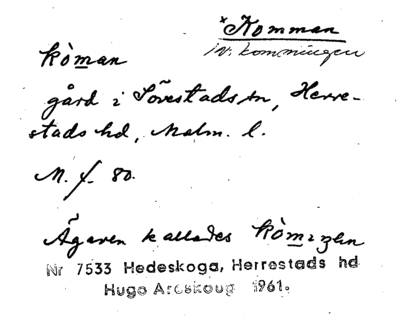 ×Komman
jv. kommingen
kòman
gård i Sövestads sn, Herre-
stads hd, Malm. l.
M. f. 80.
Ägaren kallades kòmiŋen
Nr 7533 Hedeskoga, Herrestads hd
Hugo Areskoug 1961.